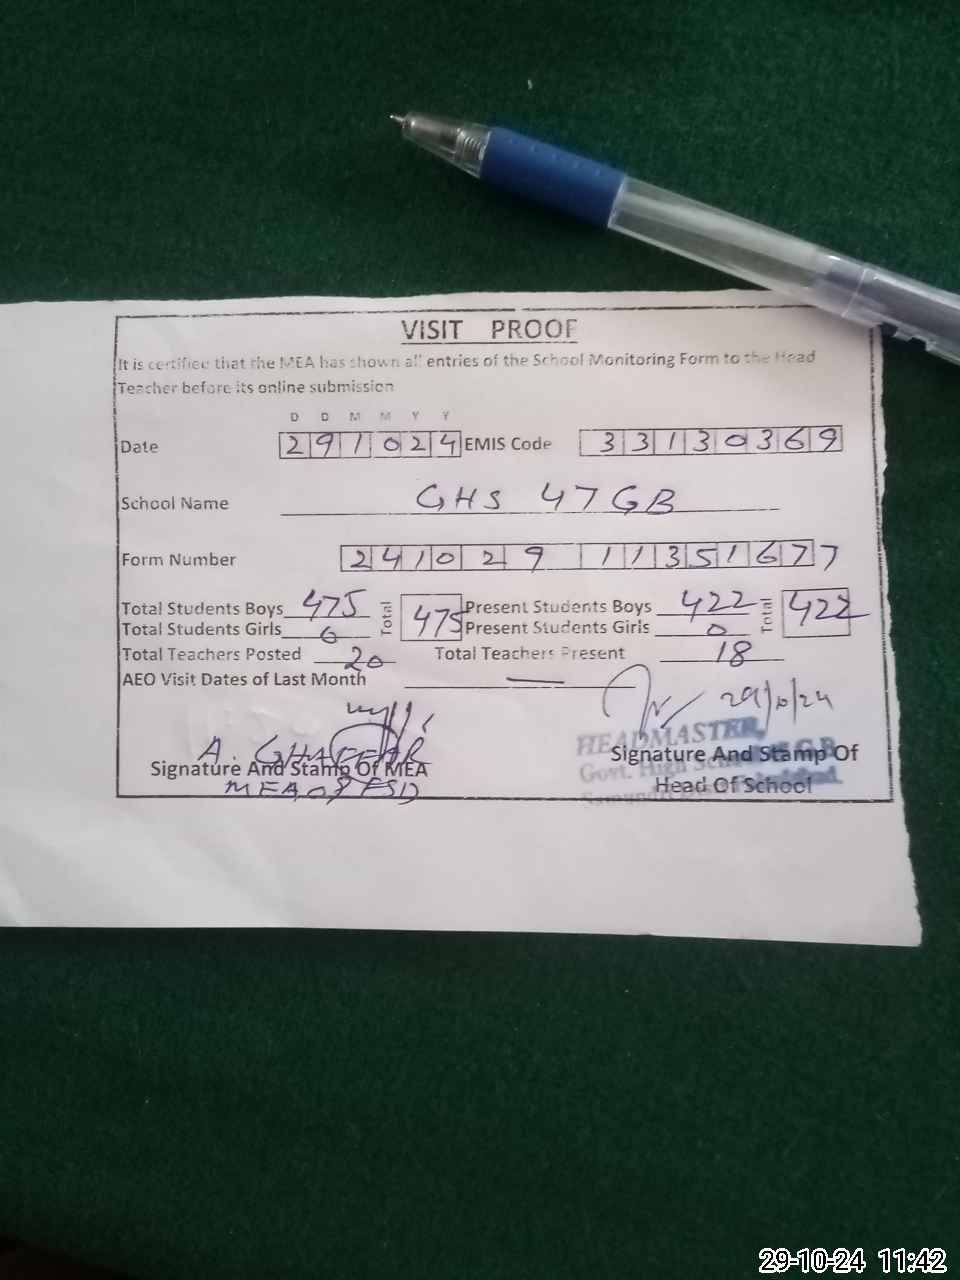 VISIT PROOF
It is certified that the MEA has shown all entries of the School Monitoring Form to the Head
Teacher before its online submission
D D M M Y Y
Date 291024 EMIS Code 33130369
School Name GHS 47 GB
Form Number 241029 11351677
Total Students Boys 475 Total 475 Present Students Boys 422 Total 422
Total Students Girls 0 Present Students Girls 0
Total Teachers Posted 20 Total Teachers Present 18
AEO Visit Dates of Last Month —
29/10/24
A. GHAFFAR
HEADMASTER,
Signature And Stamp Of MEA Signature And Stamp Of
Govt. High G.B
MEA 08 FSD Head Of School
29-10-24 11:42